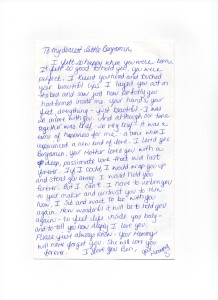 To my dearest little Benjamin,
I felt so happy when you were born.
It felt so good to hold you, you were
perfect. I kissed you and touched
your beautiful lips. I laid you out on
the bed and saw just how perfectly you
had formed inside me. Your hands, your
feet, everything - just beautiful. I was
so in love with you. And although our time
together was brief - so very brief - it was a
time of happiness for me - a time when I
experienced a new kind of love. I love you
Benjamin, your Mother loves you with a
deep, passionate love that will last
forever. If I could, I would wrap you up
and steal you away. I would hold you
forever. But I can't. I have to
to your maker and entrust you to him
now. I sit and wait to be with you
again. How wonderful it will be to hold you
again - to feel life inside your body -
and to tell you how deeply I love you.
Please just always know - your Mommy
will never forget you. She will love you
forever. I love you Ben, Mommy